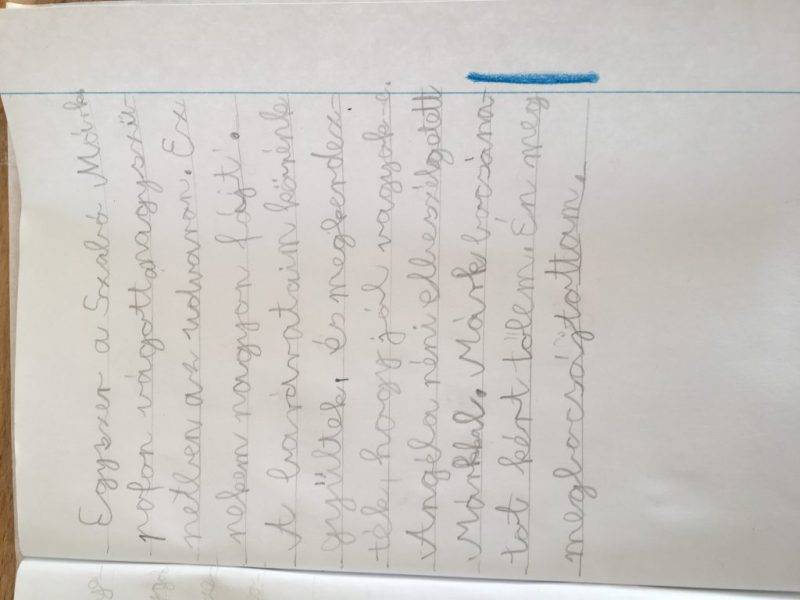 Egyszer a Szabó Márk
pofon vágott nagyszü-
netben az udvaron. Ez
nekem nagyon fájt.
A barátaim körénk
gyűltek, és megkérdez-
ték, hogy jól vagyok-e.
Angéla néni elbeszélgetett
Márkkal. Márk bocsána-
tot kért tőlem. Én meg
megbocsájtottam.